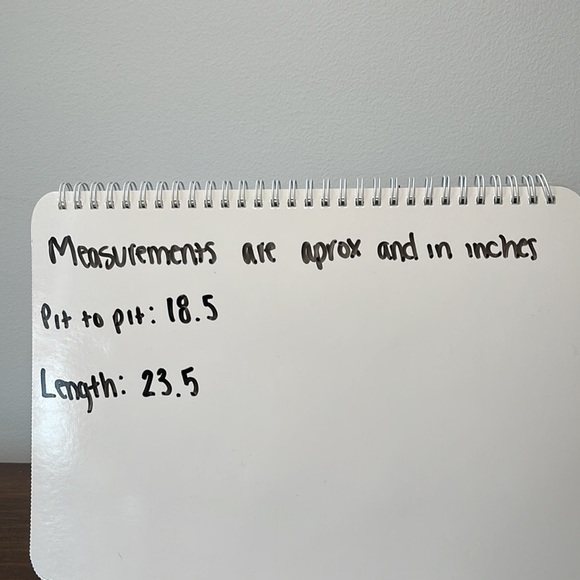 Measurements are aprox and in inches
Pit to pit: 18.5
Length: 23.5